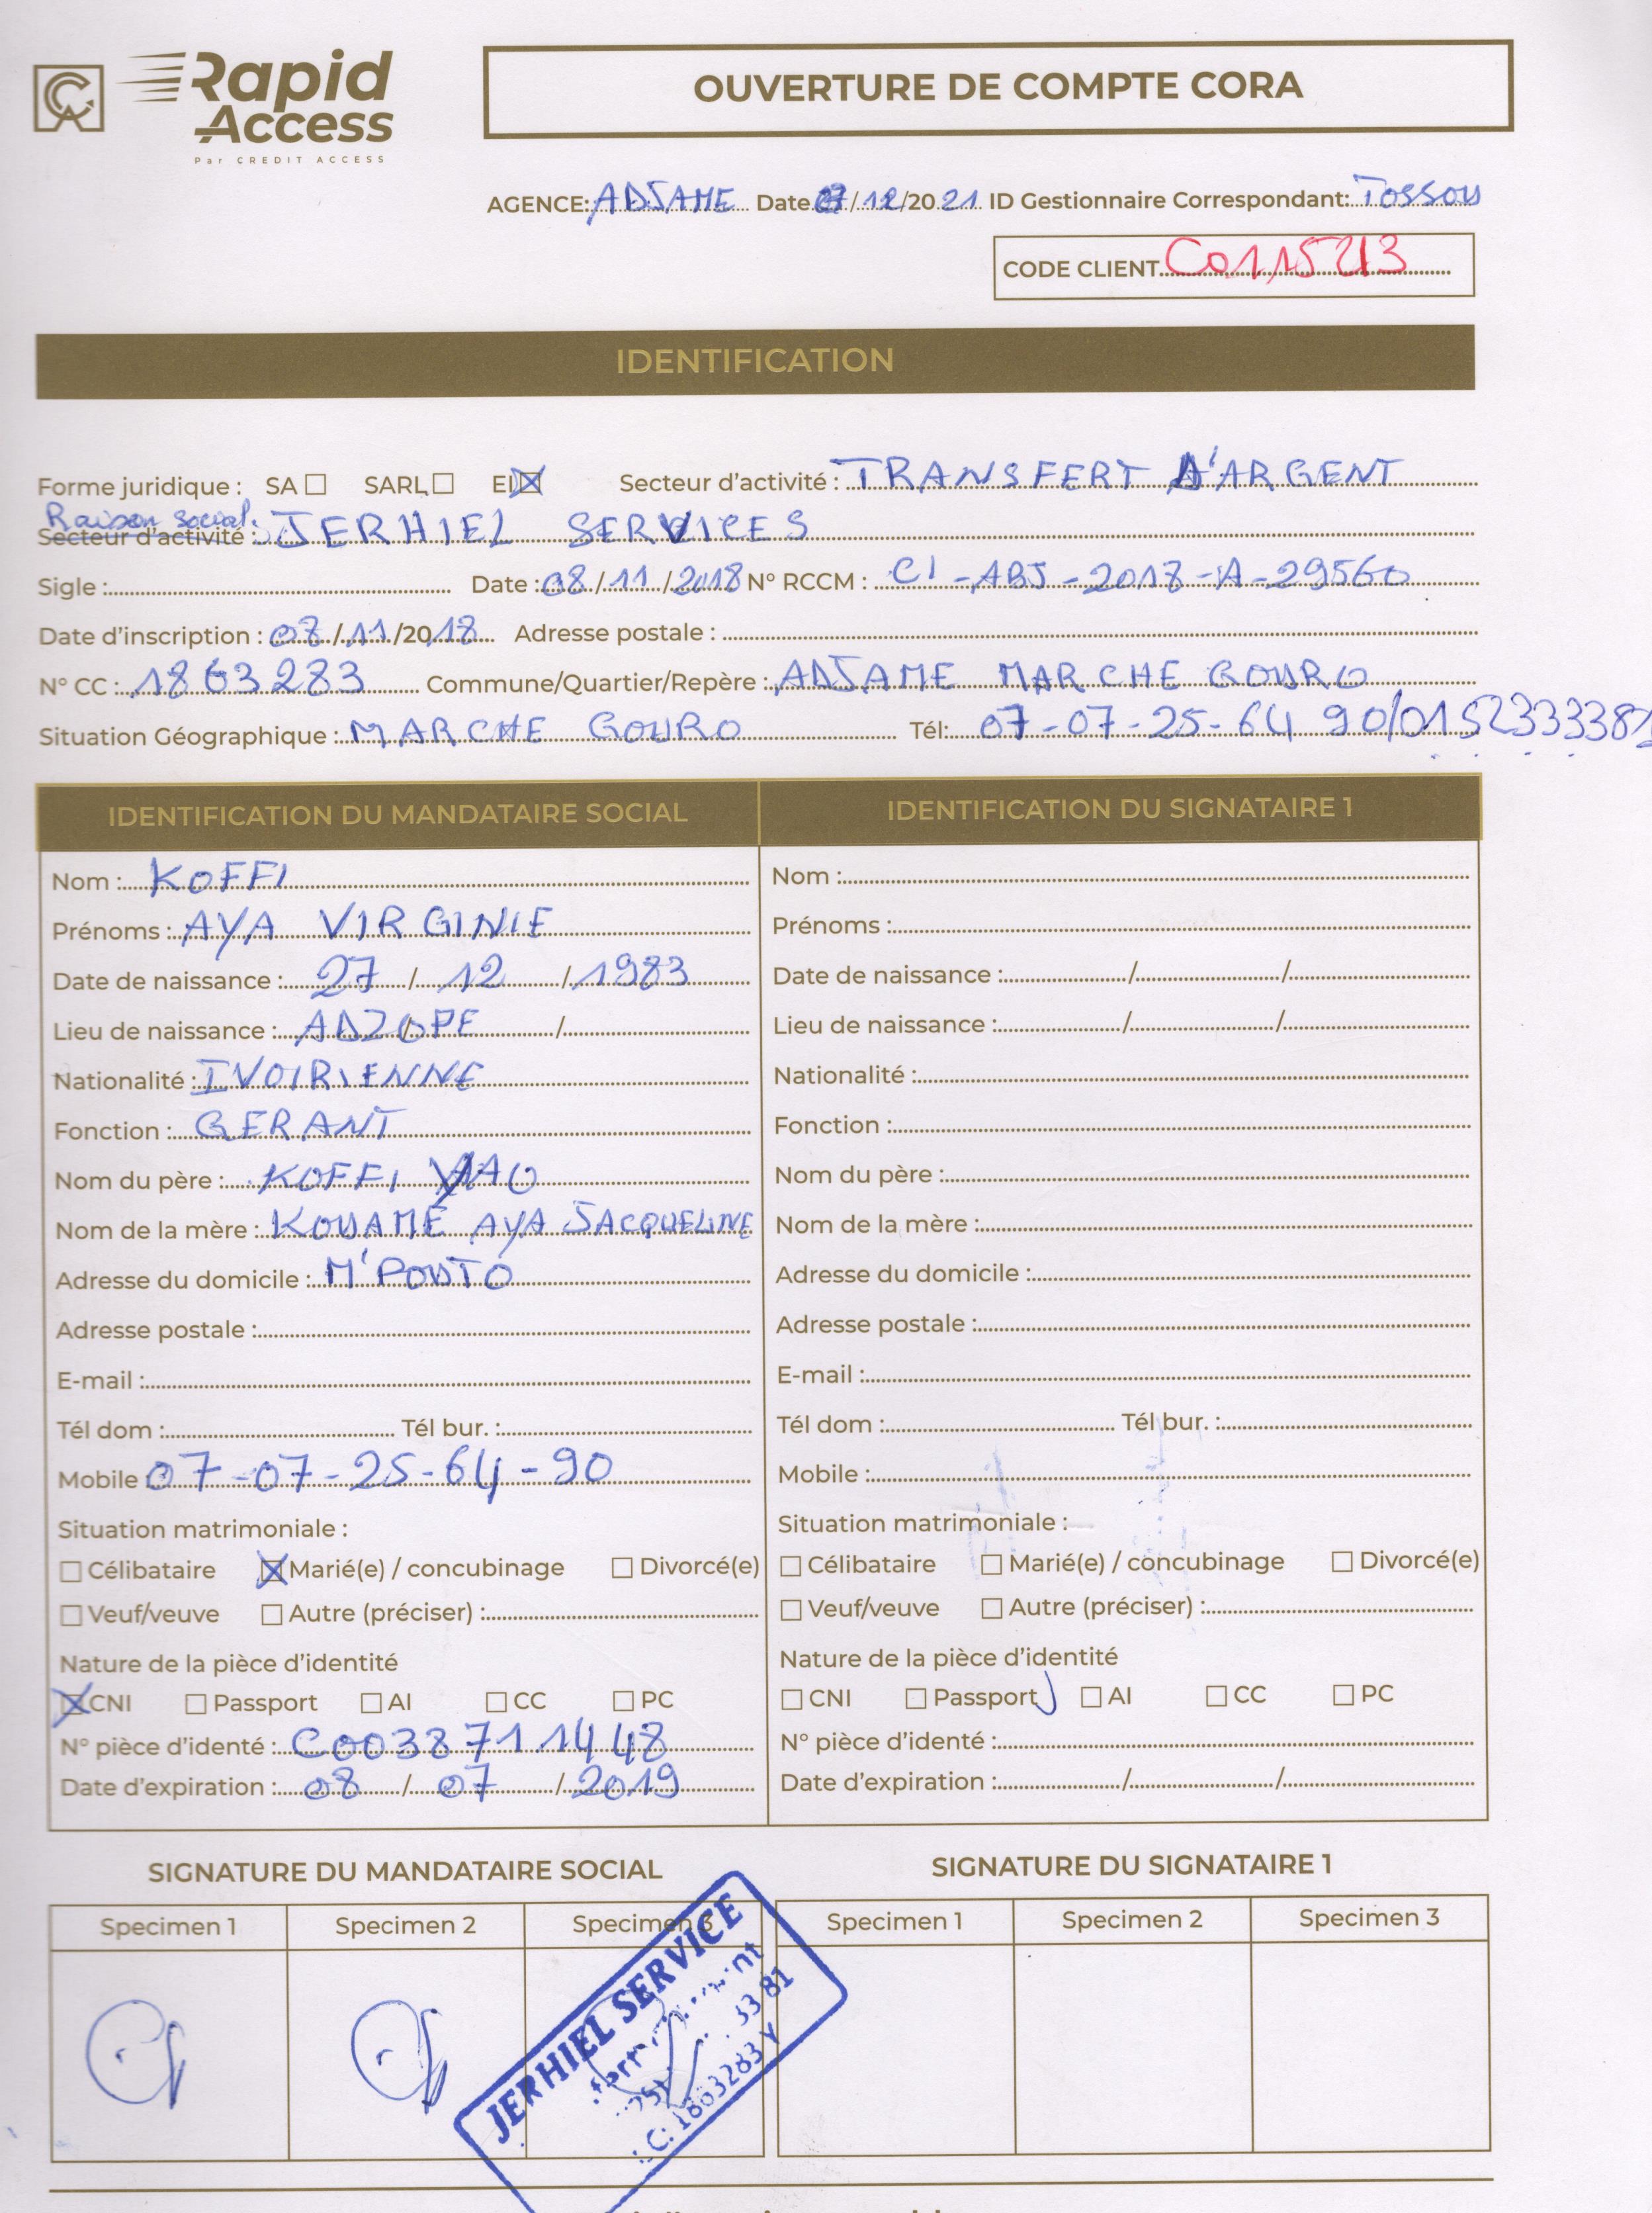 Rapid
Access
Par CREDIT ACCESS
OUVERTURE DE COMPTE CORA
AGENCE: ADJAME Date 07/12/2021 ID Gestionnaire Correspondant: TOSSOU
CODE CLIENT C0115213
IDENTIFICATION
Forme juridique : SA☐ SARL☐ EI☒ Secteur d'activité : TRANSFERT D'ARGENT
Raison social.
Secteur d'activité : JERHIEL SERVICES
Sigle : Date : 08/11/2018 N° RCCM : CI-ABJ-2018-A-29560
Date d'inscription : 07/11/2018 Adresse postale :
N° CC : 1863283 Commune/Quartier/Repère : ADJAME MARCHE GOURO
Situation Géographique : MARCHE GOURO Tél: 07-07-25-64 90/0152333381
IDENTIFICATION DU MANDATAIRE SOCIAL
Nom : KOFFI
Prénoms : AYA VIRGINIE
Date de naissance : 27 / 12 / 1983
Lieu de naissance : ADZOPE / /
Nationalité : IVOIRIENNE
Fonction : GERANT
Nom du père : KOFFI YAO
Nom de la mère : KOUAME AYA JACQUELINE
Adresse du domicile : M'POUTO
Adresse postale :
E-mail :
Tél dom : Tél bur. :
Mobile : 07-07-25-64-90
Situation matrimoniale :
☐ Célibataire ☒ Marié(e) / concubinage ☐ Divorcé(e)
☐ Veuf/veuve ☐ Autre (préciser) :
Nature de la pièce d'identité
☒ CNI ☐ Passport ☐ AI ☐ CC ☐ PC
N° pièce d'identé : C00387111448
Date d'expiration : 08 / 07 / 2019
IDENTIFICATION DU SIGNATAIRE 1
Nom :
Prénoms :
Date de naissance : / /
Lieu de naissance : / /
Nationalité :
Fonction :
Nom du père :
Nom de la mère :
Adresse du domicile :
Adresse postale :
E-mail :
Tél dom : Tél bur. :
Mobile :
Situation matrimoniale :
☐ Célibataire ☐ Marié(e) / concubinage ☐ Divorcé(e)
☐ Veuf/veuve ☐ Autre (préciser) :
Nature de la pièce d'identité
☐ CNI ☐ Passport ☐ AI ☐ CC ☐ PC
N° pièce d'identé :
Date d'expiration : / /
SIGNATURE DU MANDATAIRE SOCIAL
Specimen 1 Specimen 2 Specimen 3
JERHIEL SERVICE
33 81
C: 1863283 Y
SIGNATURE DU SIGNATAIRE 1
Specimen 1 Specimen 2 Specimen 3